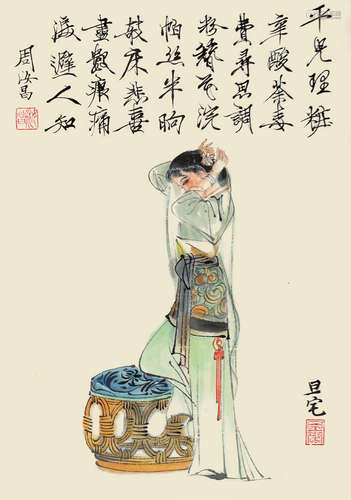 平兒理妝
辛酸荼毒
費尋思調
粉簪花浣
帕絲半晌
妝床悲喜
盡鬢痕猶
濺避人知
周汝昌
旦宅